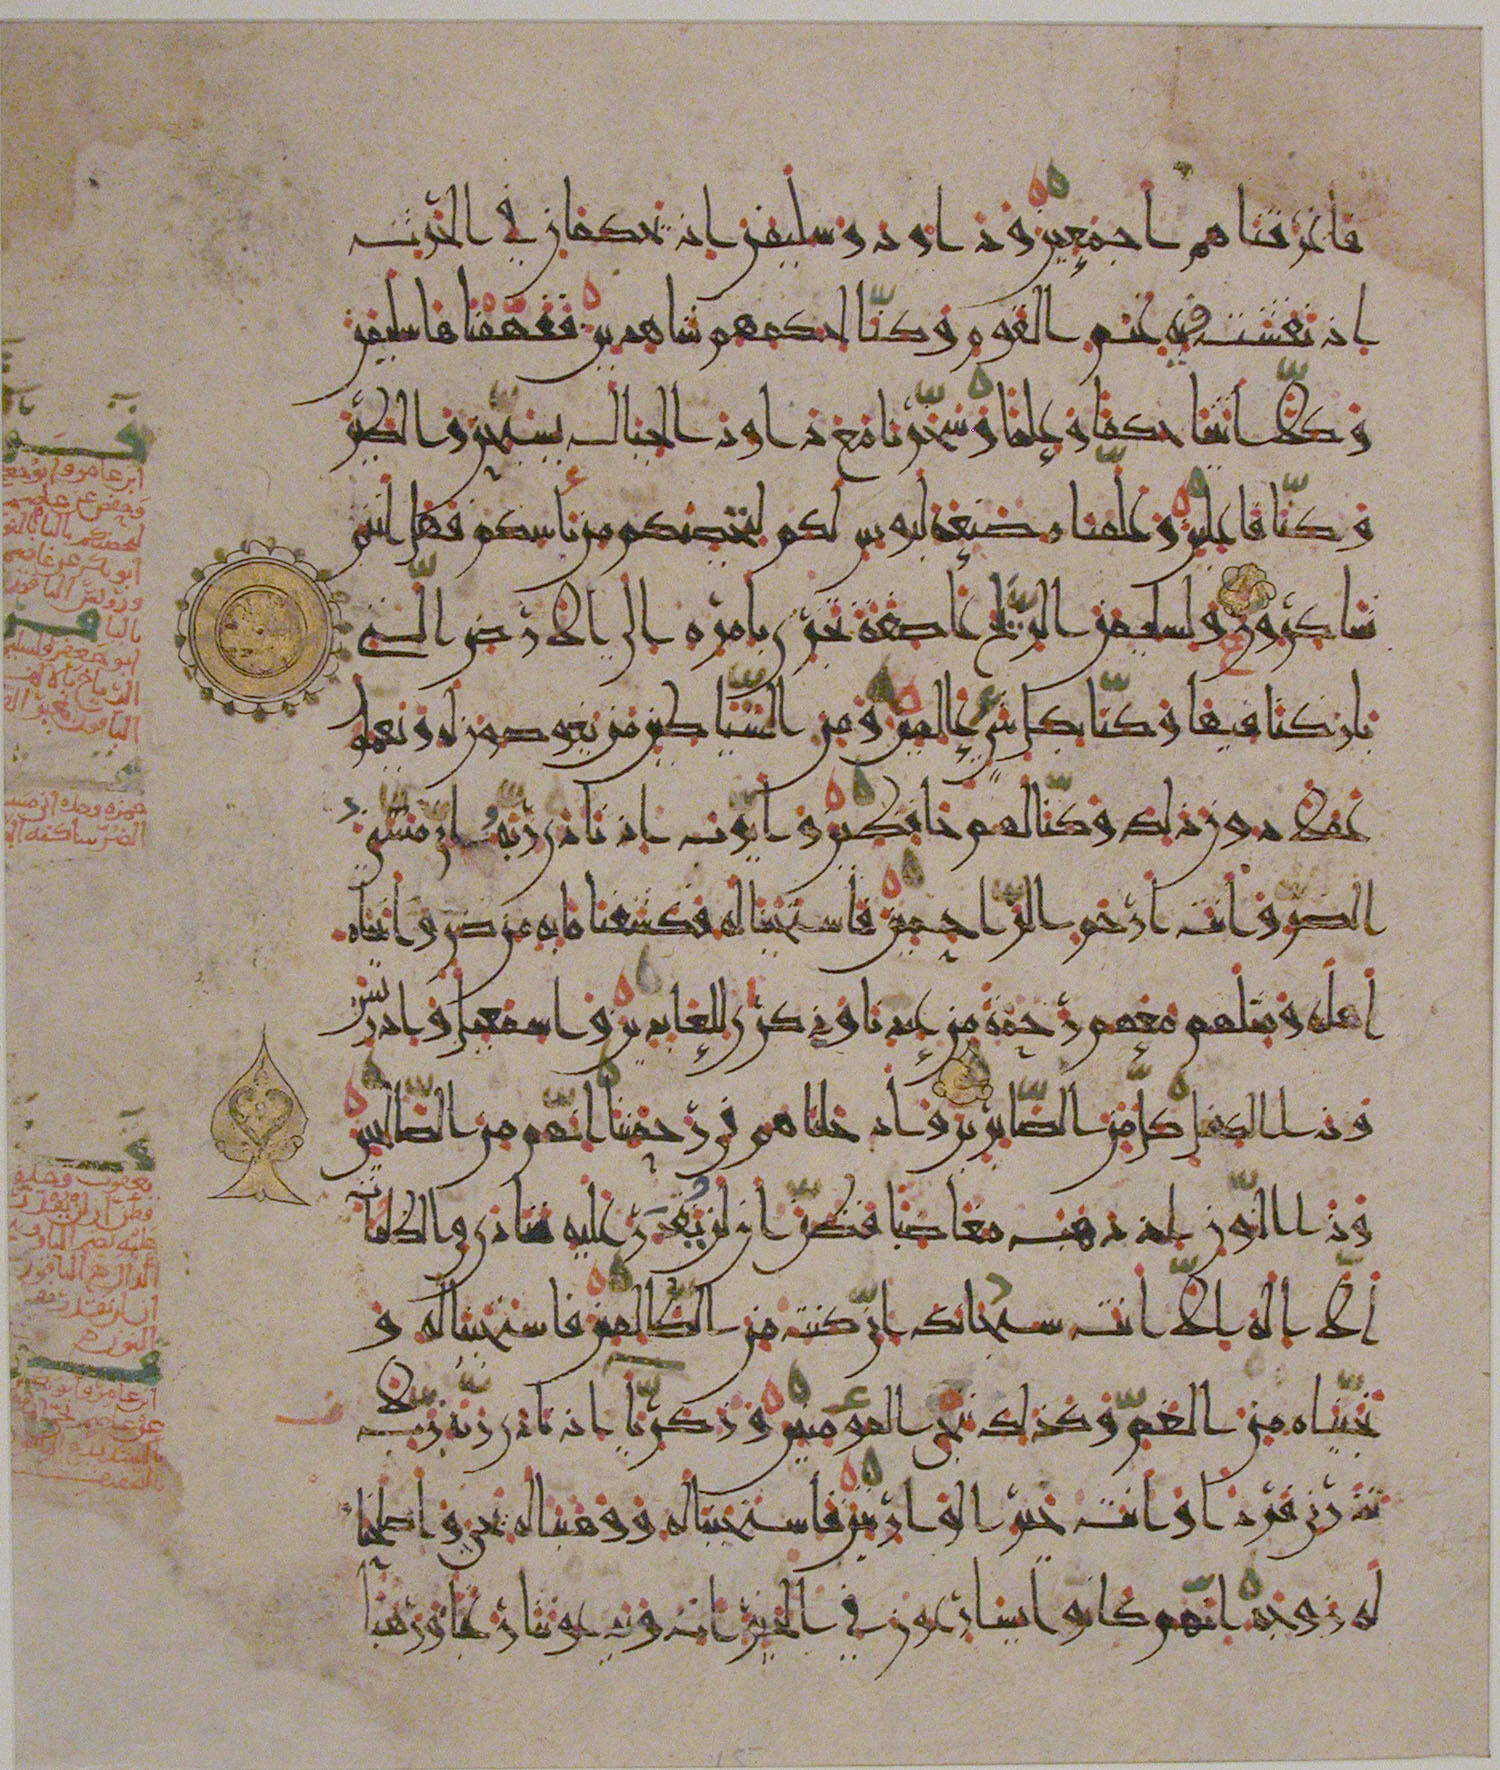 فاغرقناهم اجمعين وداود وسليمن اذ يحكمان في الحرث
اذ نفشت فيه غنم القوم وكنا لحكمهم شاهدين ففهمناها سليمن
وكلا اتينا حكما وعلما وسخرنا مع داود الجبال يسبحن والطير
وكنا فاعلين وعلمناه صنعة لبوس لكم لتحصنكم من باسكم فهل انتم
شاكرون ولسليمن الريح عاصفة تجري بامره الى الارض التي
باركنا فيها وكنا بكل شي عالمين ومن الشياطين من يغوصون له ويعملو
عملا دون ذلك وكنا لهم حافظين وايوب اذ نادى ربه اني مسني
الضر وانت ارحم الراحمين فاستجبنا له فكشفنا ما به من ضر واتيناه
اهله ومثلهم معهم رحمة من عندنا وذكرى للعابدين واسمعيل وادريس
وذا الكفل كل من الصابرين وادخلناهم في رحمتنا انهم من الصالحين
وذا النون اذ ذهب مغاضبا فظن ان لن نقدر عليه فنادى في الظلمات
ان لا اله الا انت سبحانك اني كنت من الظالمين فاستجبنا له و
نجيناه من الغم وكذلك ننجي المؤمنين وزكريا اذ نادى ربه رب لا
تذرني فردا وانت خير الوارثين فاستجبنا له ووهبنا له يحيى واصلحنا
له زوجه انهم كانوا يسارعون في الخيرات ويدعوننا رغبا ورهبا
ابن عامر وابو جعفر
وحفص عن عاصم
لتحصنكم بالتا
ابو بكر عن عاصم
بالنا
الرياح
حمزه وحده
يعقوب وحده